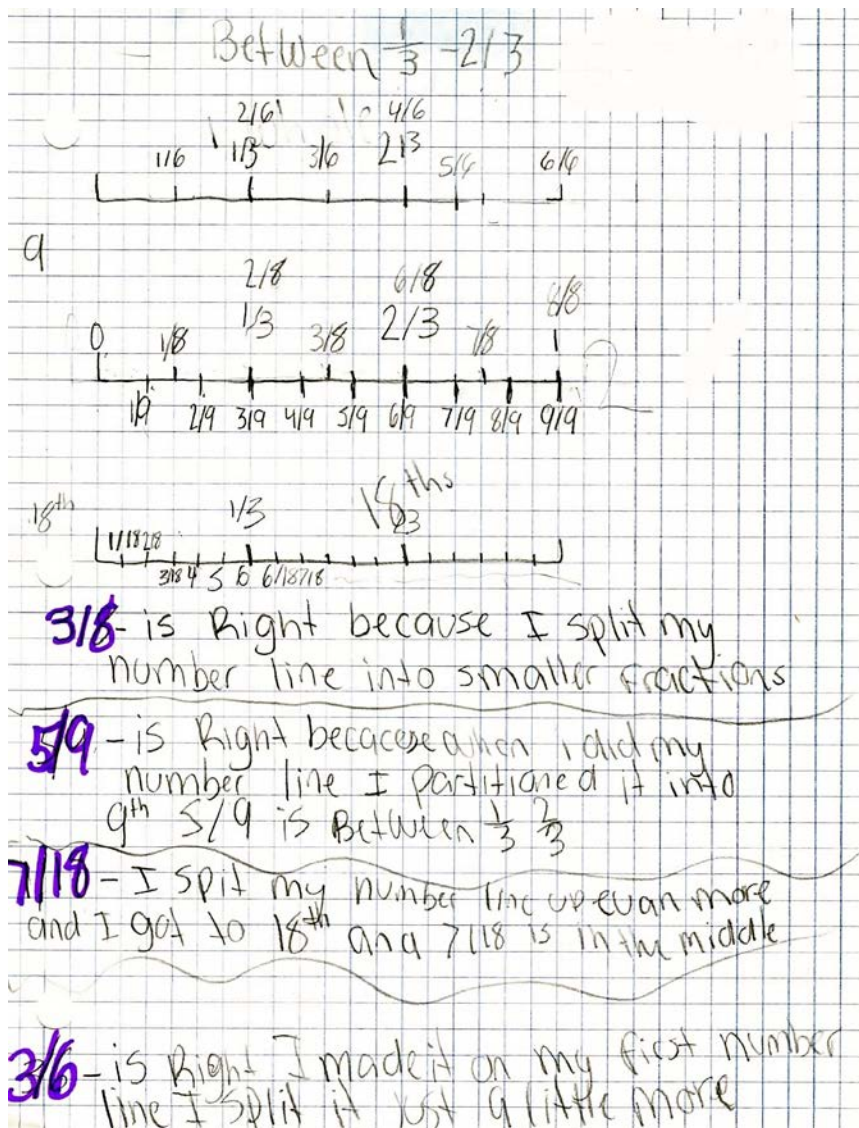 Between 1/3 - 2/3
2/6 4/6
1/6 1/3 3/6 2/3 5/6 6/6
9
2/8 6/8 8/8
0 1/8 1/3 3/8 2/3 7/8
1/9 2/9 3/9 4/9 5/9 6/9 7/9 8/9 9/9
18th 1/3 18ths
1/18 2/18
3/18 4 5 6 6/18 7/18
3/8 - is Right because I split my
number line into smaller fractions
5/9 - is Right becacese when i did my
number line I partitioned it into
9th 5/9 is Between 1/3 2/3
7/18 - I spit my number line up evan more
and I got to 18th and 7/18 is in the middle
3/6 - is Right I made it on my first number
line I split it just a little more